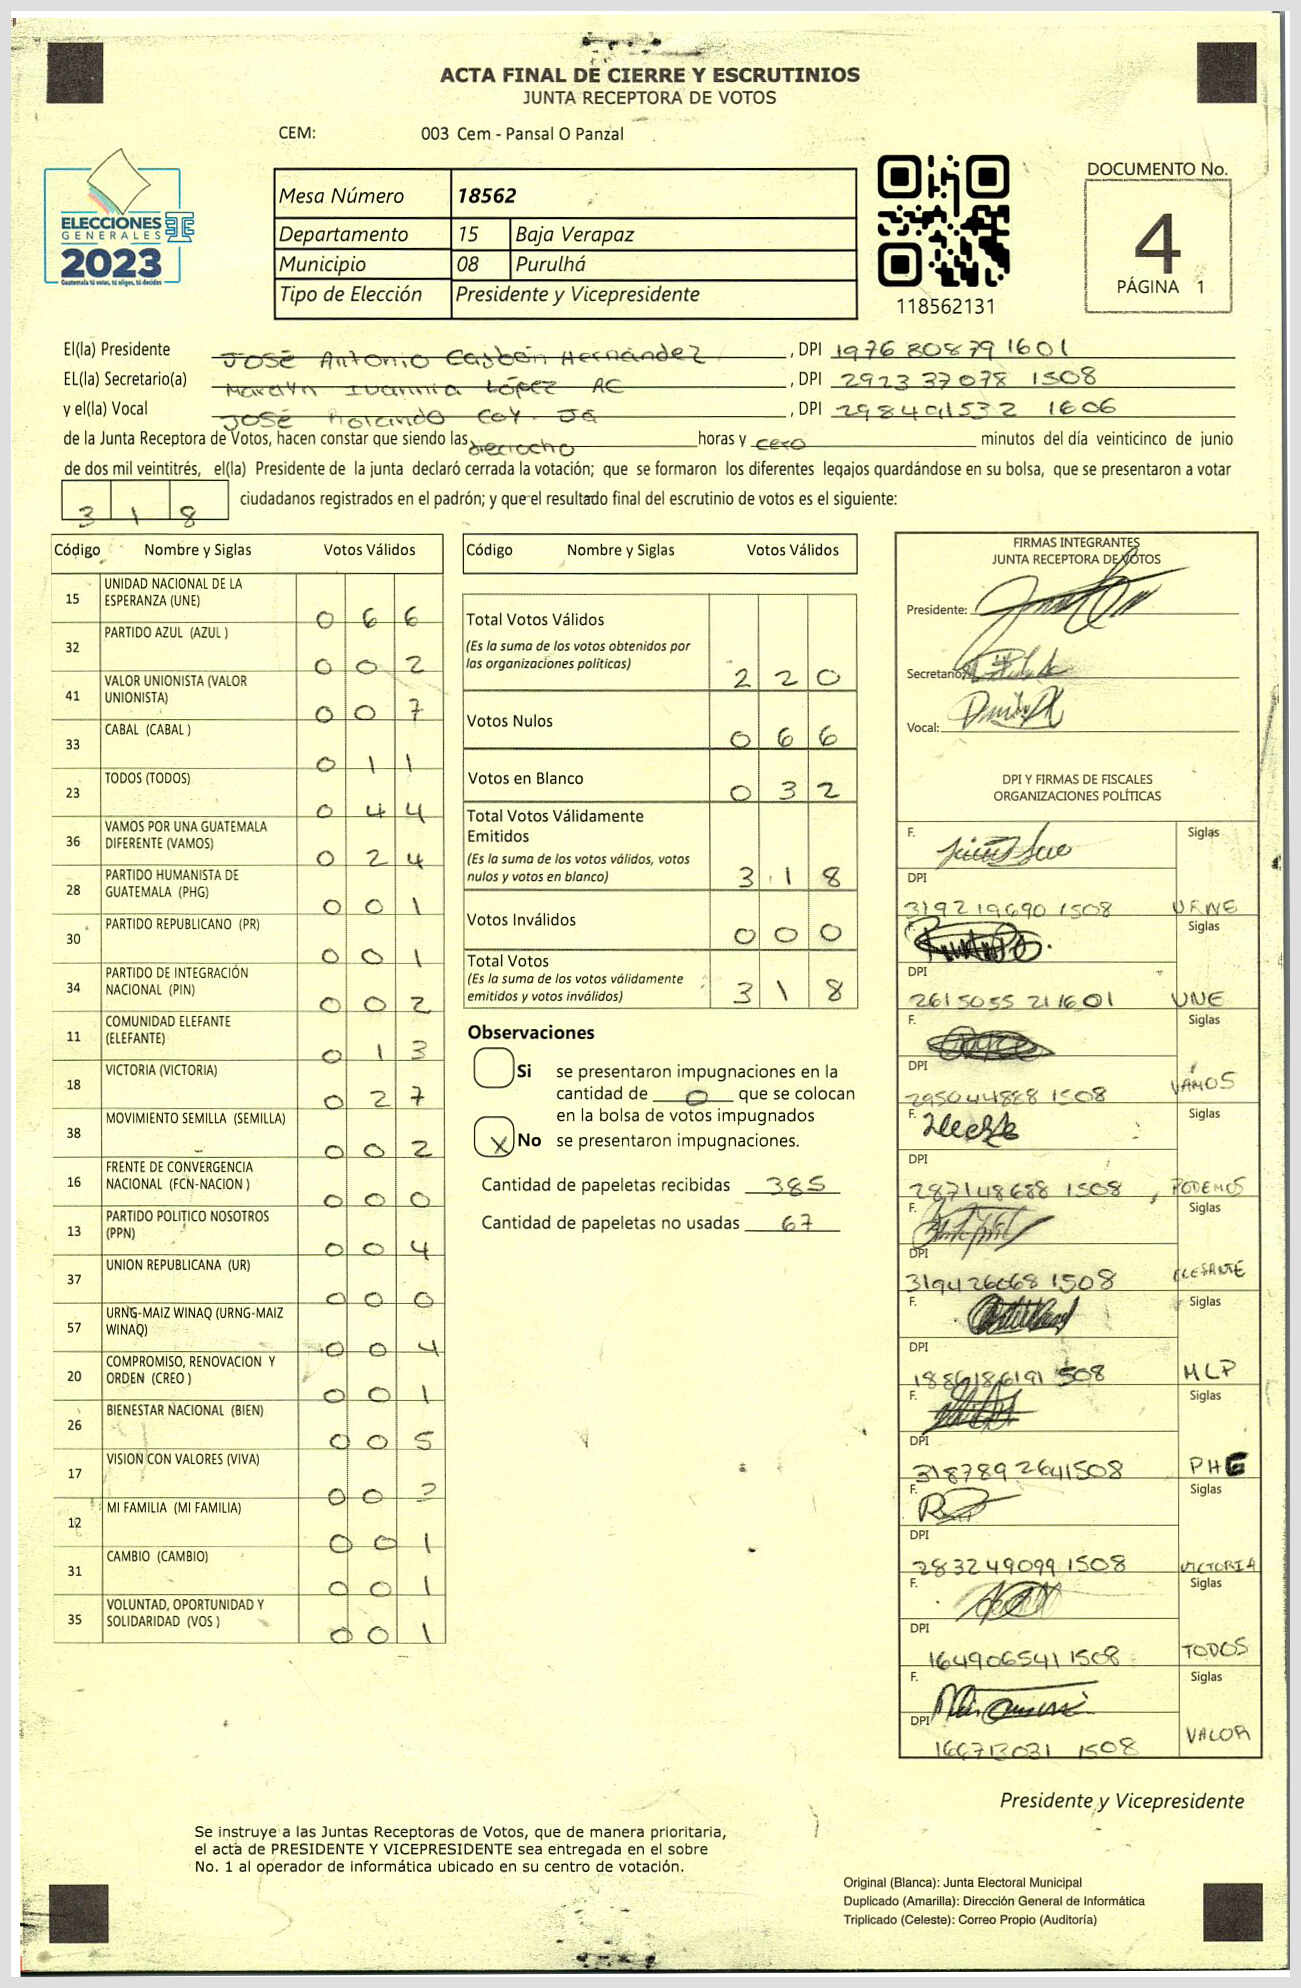 ACTA FINAL DE CIERRE Y ESCRUTINIOS
JUNTA RECEPTORA DE VOTOS
CEM: 003 Cem - Pansal O Panzal
ELECCIONES
GENERALES
2023
Guatemala tú votas, tú eliges, tú decides
Mesa Número 18562
Departamento 15 Baja Verapaz
Municipio 08 Purulhá
Tipo de Elección Presidente y Vicepresidente
118562131
DOCUMENTO No.
4
PÁGINA 1
El(la) Presidente JOSÉ Antonio Hernández , DPI 1976 80879 1601
EL(la) Secretario(a) López AC , DPI 2923 37078 1508
y el(la) Vocal JOSÉ Rolando Coy JG , DPI 298491532 1606
de la Junta Receptora de Votos, hacen constar que siendo las dieciocho horas y cero minutos del día veinticinco de junio
de dos mil veintitrés, el(la) Presidente de la junta declaró cerrada la votación; que se formaron los diferentes legajos quardándose en su bolsa, que se presentaron a votar
318 ciudadanos registrados en el padrón; y que el resultado final del escrutinio de votos es el siguiente:
Código Nombre y Siglas Votos Válidos
15 UNIDAD NACIONAL DE LA ESPERANZA (UNE) 066
32 PARTIDO AZUL (AZUL ) 002
41 VALOR UNIONISTA (VALOR UNIONISTA) 007
33 CABAL (CABAL ) 011
23 TODOS (TODOS) 044
36 VAMOS POR UNA GUATEMALA DIFERENTE (VAMOS) 024
28 PARTIDO HUMANISTA DE GUATEMALA (PHG) 001
30 PARTIDO REPUBLICANO (PR) 001
34 PARTIDO DE INTEGRACIÓN NACIONAL (PIN) 002
11 COMUNIDAD ELEFANTE (ELEFANTE) 013
18 VICTORIA (VICTORIA) 027
38 MOVIMIENTO SEMILLA (SEMILLA) 002
16 FRENTE DE CONVERGENCIA NACIONAL (FCN-NACION ) 000
13 PARTIDO POLITICO NOSOTROS (PPN) 004
37 UNION REPUBLICANA (UR) 000
57 URNG-MAIZ WINAQ (URNG-MAIZ WINAQ) 004
20 COMPROMISO, RENOVACION Y ORDEN (CREO ) 001
26 BIENESTAR NACIONAL (BIEN) 005
17 VISION CON VALORES (VIVA) 00
12 MI FAMILIA (MI FAMILIA) 001
31 CAMBIO (CAMBIO) 001
35 VOLUNTAD, OPORTUNIDAD Y SOLIDARIDAD (VOS ) 001
Código Nombre y Siglas Votos Válidos
Total Votos Válidos 220
(Es la suma de los votos obtenidos por
las organizaciones políticas)
Votos Nulos 066
Votos en Blanco 032
Total Votos Válidamente
Emitidos
(Es la suma de los votos válidos, votos
nulos y votos en blanco) 318
Votos Inválidos 000
Total Votos
(Es la suma de los votos válidamente
emitidos y votos inválidos) 318
Observaciones
Si se presentaron impugnaciones en la
cantidad de 0 que se colocan
en la bolsa de votos impugnados
X No se presentaron impugnaciones.
Cantidad de papeletas recibidas 385
Cantidad de papeletas no usadas 67
FIRMAS INTEGRANTES
JUNTA RECEPTORA DE VOTOS
Presidente:
Secretario:
Vocal:
DPI Y FIRMAS DE FISCALES
ORGANIZACIONES POLÍTICAS
F. Siglas
DPI
3192 19690 1508
F. Siglas
DPI
2615055 21 1601 UNE
F. Siglas
DPI
295044888 1508 VAMOS
F. Siglas
DPI
287148688 1508 , PODEMOS
F. Siglas
DPI
319426068 1508 ELEFANTE
F. Siglas
DPI
MLP
F. Siglas
DPI
318789264 1508 PHG
F. Siglas
DPI
283249099 1508 VICTORIA
F. Siglas
DPI
164906541 1508 TODOS
F. Siglas
DPI
166713031 1508 VALOR
Presidente y Vicepresidente
Se instruye a las Juntas Receptoras de Votos, que de manera prioritaria,
el acta de PRESIDENTE Y VICEPRESIDENTE sea entregada en el sobre
No. 1 al operador de informática ubicado en su centro de votación.
Original (Blanca): Junta Electoral Municipal
Duplicado (Amarilla): Dirección General de Informática
Triplicado (Celeste): Correo Propio (Auditoría)